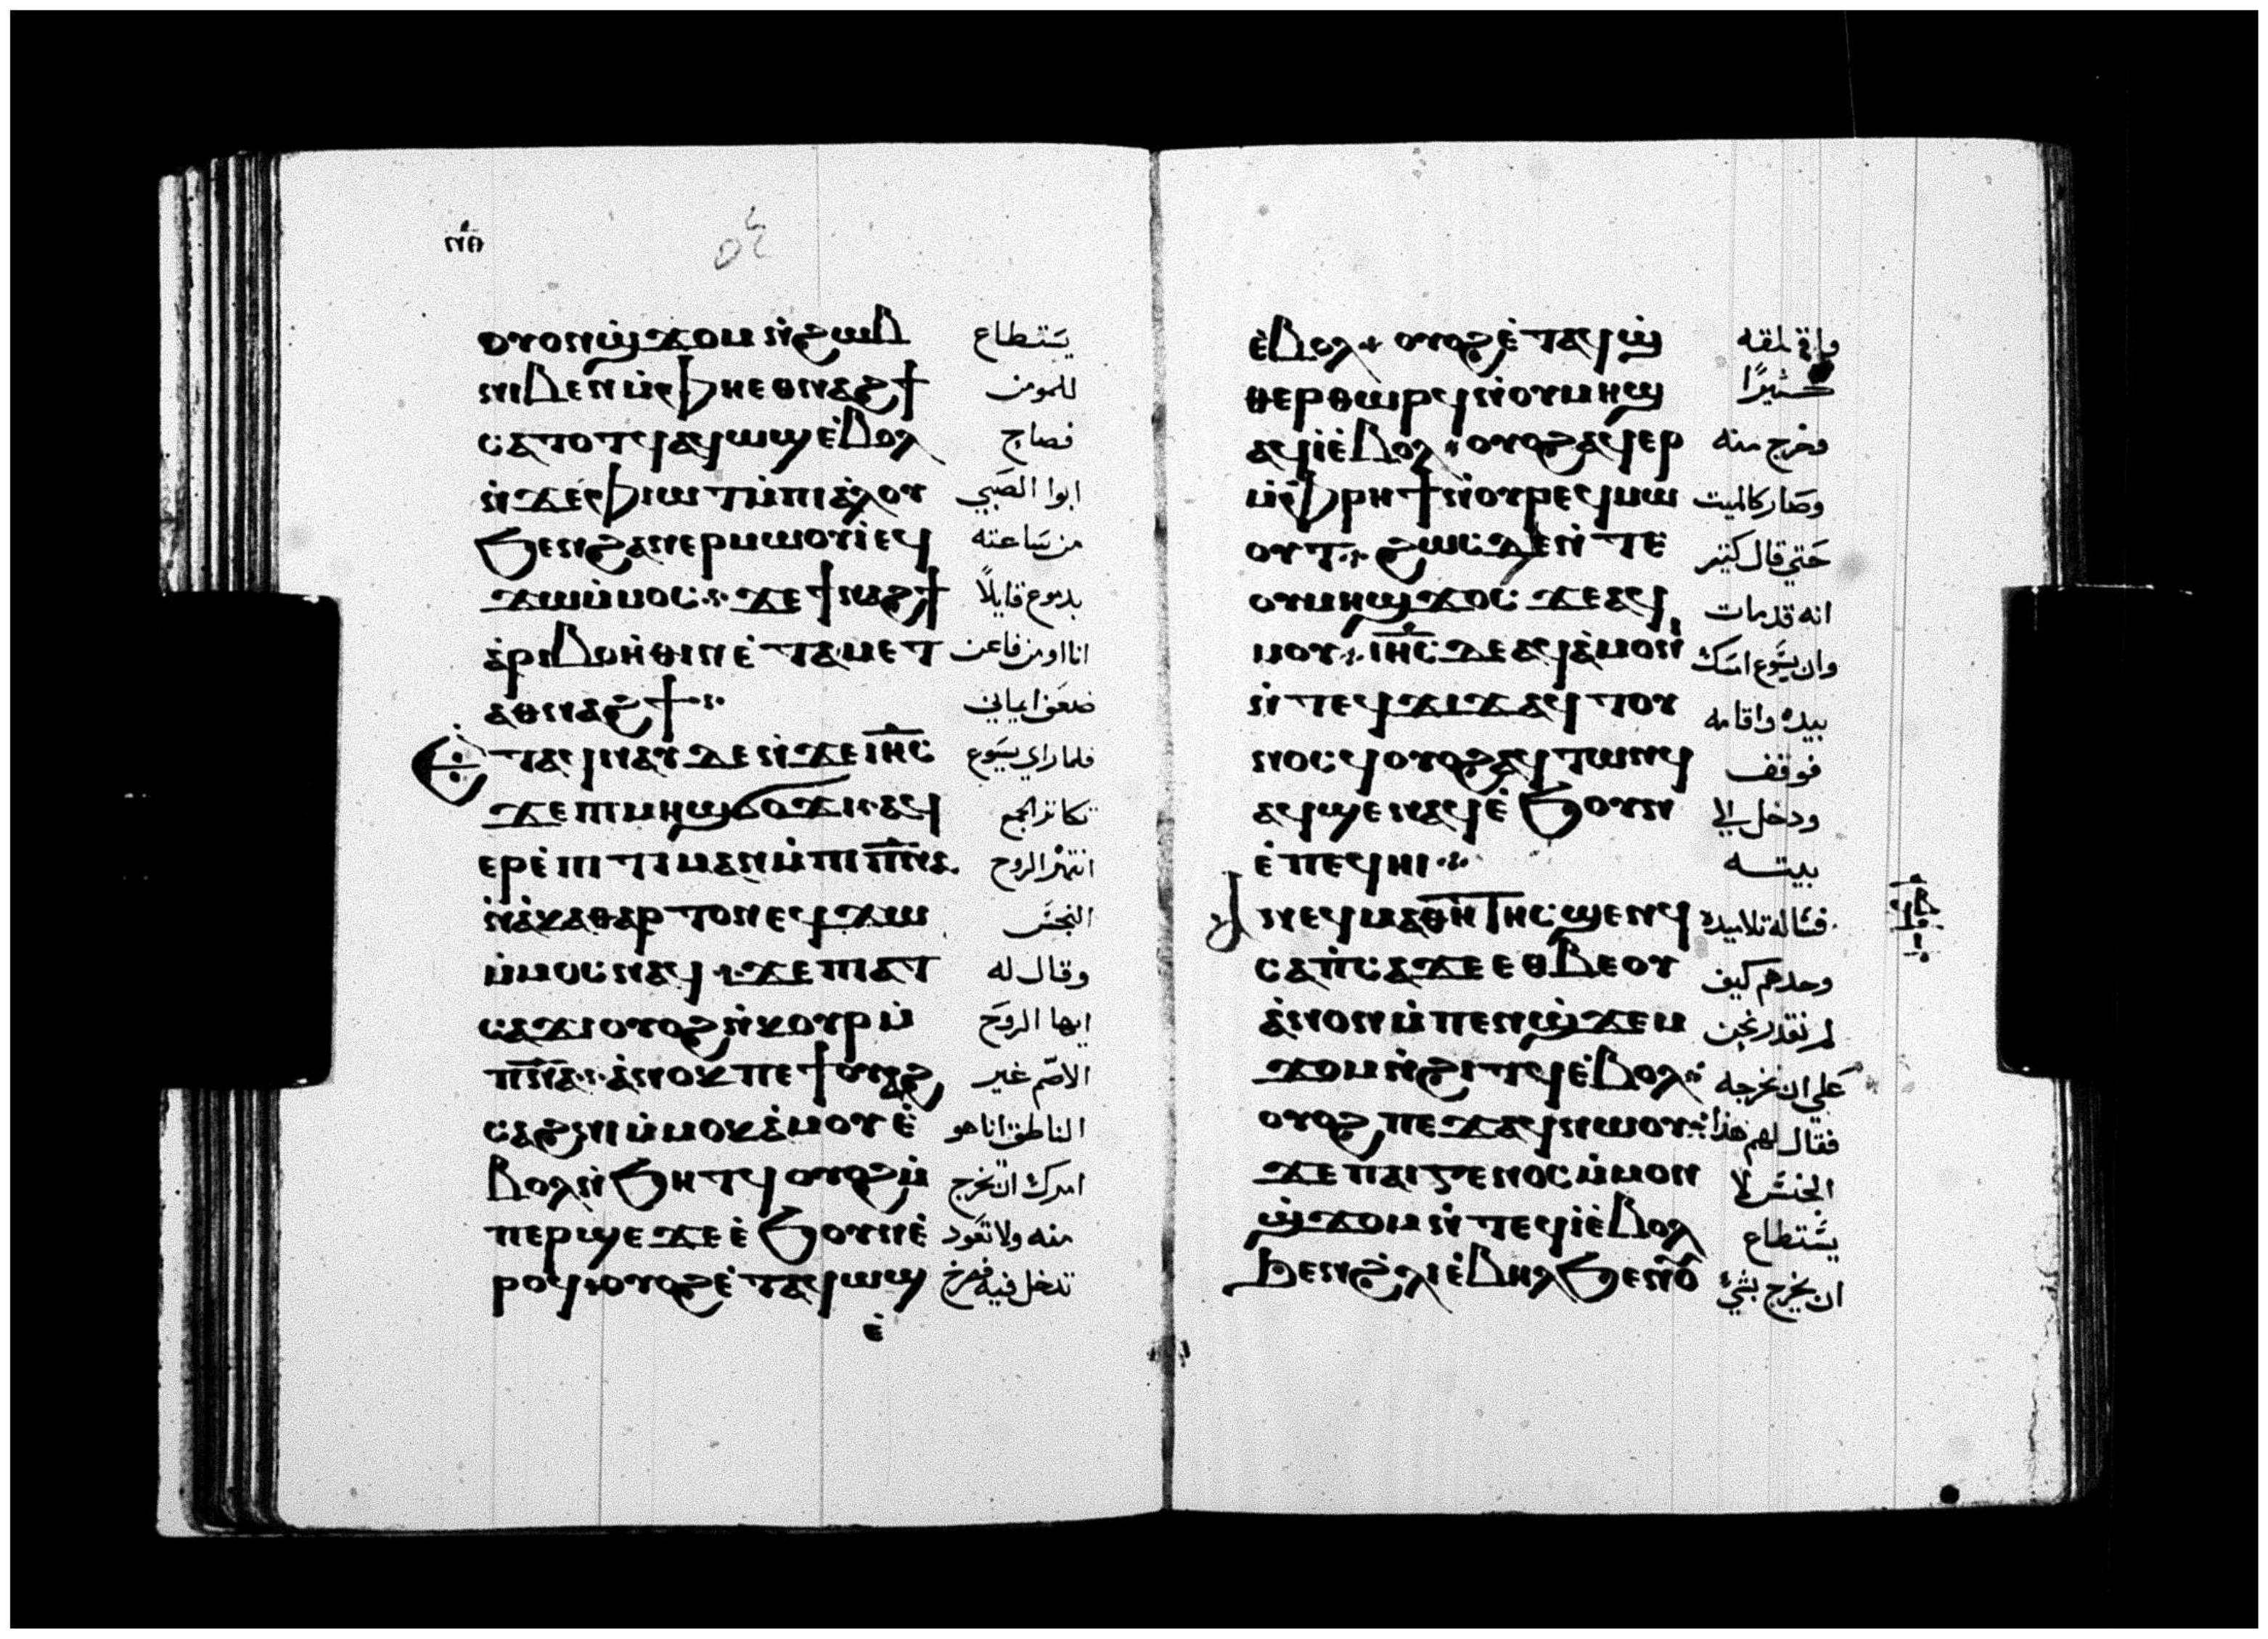 ⲟⲩⲟⲛϣϫⲟⲙ ⲛ̇ϩⲱⲃ
يستطاع
ⲛⲓⲃⲉⲛ ⲙ̇ⲫⲏⲉⲑⲛⲁϩϯ
للمومن
ⲥⲁⲧⲟⲧϥ ⲁϥⲱϣ ⲉ̇ⲃⲟⲗ
فصاح
ⲛ̇ϫⲉ ⲫⲓⲱⲧ ⲙ̇ⲡⲓⲁ̇ⲗⲟⲩ
ابوا الصبي
ϧⲉⲛ ϩⲁⲛⲉⲣⲙⲱⲟⲩⲓ̇ ⲉϥ
من ساعته
ϫⲱ ⲙ̇ⲙⲟⲥ ϫⲉ ϯⲛⲁϩϯ
بدموع قايلاً
ⲁ̇ⲣⲓⲃⲟⲏ̇ⲑⲓⲛ ⲉ̇ⲧⲁⲙⲉⲧ
انا اومن فاعن
ⲁⲑⲛⲁϩϯ
ضعف ايماني
ⲉ̇ⲧⲁϥⲛⲁⲩ ⲇⲉ ⲛ̇ϫⲉ ⲓⲏ̅ⲥ̅
فلما راي يسوع
ϫⲉ ⲡⲓⲙⲏϣ ϭⲟϫⲓ ⲁϥ
تكاثر الجمع
ⲉⲣⲉ̇ⲡⲓⲧⲓⲙⲁⲛ ⲙ̇ⲡⲓⲡ̅ⲛ̅ⲁ̅
انتهر الروح
ⲛ̇ⲁ̇ⲕⲁⲑⲁⲣⲧⲟⲛ ⲉϥϫⲱ
النجس
ⲙ̇ⲙⲟⲥ ⲛⲁϥ ϫⲉ ⲡⲓⲁⲧ
وقال له
ⲥⲁϫⲓ ⲟⲩⲟϩ ⲛ̇ⲕⲟⲩⲣ ⲙ̇
ايها الروح
ⲡ̅ⲛ̅ⲁ̅ ⲁ̇ⲛⲟⲕ ⲡⲉϯⲟⲩⲁϩ
الاصم غير
ⲥⲁϩⲛⲓ ⲙ̇ⲙⲟⲕ ⲁ̇ⲙⲟⲩ ⲉ̇
الناطق انا هو
ⲃⲟⲗ ⲛ̇ϧⲏⲧϥ ⲟⲩⲟϩ ⲙ̇
امرك ان تخرج
ⲡⲉⲣϣⲉ ϫⲉ ⲉ̇ϧⲟⲩⲛ ⲉ̇
منه ولا تعود
ⲣⲟϥ ⲟⲩⲟϩ ⲉ̇ⲧⲁϥⲱϣ
تدخل فيه فصرخ
ⲉ̇
ⲉ̇ⲃⲟⲗ ⲟⲩⲟϩ ⲉ̇ⲧⲁϥϣ
ⲑⲉⲣⲑⲱⲣϥ ⲛ̇ⲟⲩⲙⲏϣ
كثيرًا
ⲁϥⲓ̇ ⲉ̇ⲃⲟⲗ ⲟⲩⲟϩ ⲁϥⲉⲣ
وخرج منه
ⲙ̇ⲫⲣⲏϯ ⲛ̇ⲟⲩⲣⲉϥⲙⲱ
وصار كالميت
ⲟⲩⲧ ϩⲱⲥⲇⲉ ⲛ̇ⲧⲉ
حتي قال كثير
ⲟⲩⲙⲏϣ ϫⲟⲥ ϫⲉ ⲁϥ
انه قد مات
ⲙⲟⲩ ⲓⲏ̅ⲥ̅ ⲇⲉ ⲁϥⲁ̇ⲙⲟⲛⲓ
وان يسوع امسك
ⲛ̇ⲧⲉϥϫⲓϫ ⲁϥⲧⲟⲩ
بيده واقامه
ⲛⲟⲥϥ ⲟⲩⲟϩ ⲁϥⲧⲱⲛϥ
فوقف
ⲁϥϣⲉⲛⲁϥ ⲉ̇ϧⲟⲩⲛ
ودخل الي
ⲉ̇ⲡⲉϥⲏⲓ
بيته
ⲛⲉϥⲙⲁⲑⲏⲧⲏⲥ ϣⲉⲛϥ
فساله تلاميده
ⲥⲁⲡ̇ⲥⲁ ϫⲉ ⲉⲑⲃⲉⲟⲩ
وحدهم كيف
ⲁ̇ⲛⲟⲛ ⲙ̇ⲡⲉⲛϣϫⲉⲙ
لم نقدر نحن
ϫⲟⲙ ⲛ̇ϩⲓⲧϥ ⲉ̇ⲃⲟⲗ
علي ان نخرجه
ⲟⲩⲟϩ ⲡⲉϫⲁϥ ⲛⲱⲟⲩ
فقال لهم هذا
ϫⲉ ⲡⲁⲓⲅⲉⲛⲟⲥ ⲙ̇ⲙⲟⲛ
الجنس لا
ϣϫⲟⲙ ⲛ̇ⲧⲉϥⲓ̇ ⲉ̇ⲃⲟⲗ
يستطاع
ϧⲉⲛ ϩ̇ⲗⲓ ⲉ̇ⲃⲏⲗ ϧⲉⲛ ⲟⲩ
ان يخرج بشي